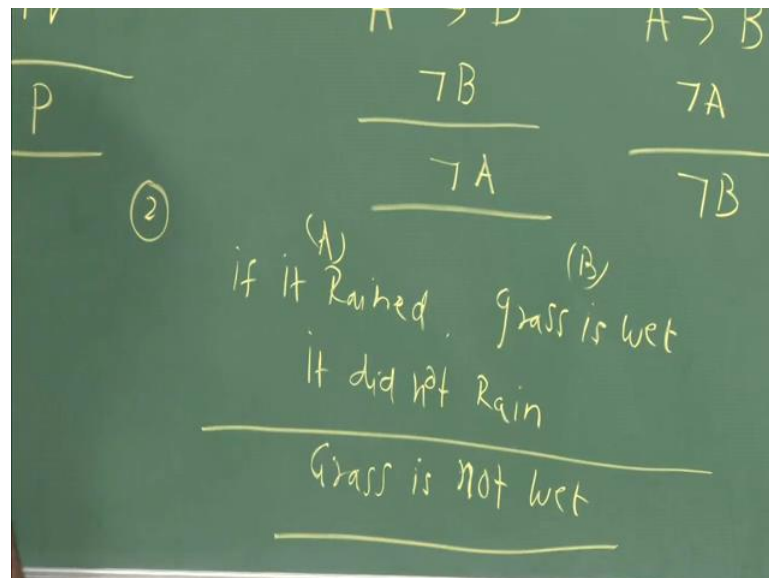 A → B
A → B
¬B
¬A
P
¬A
¬B
2
(A)
(B)
if it Rained. Grass is wet
it did not Rain
Grass is not wet